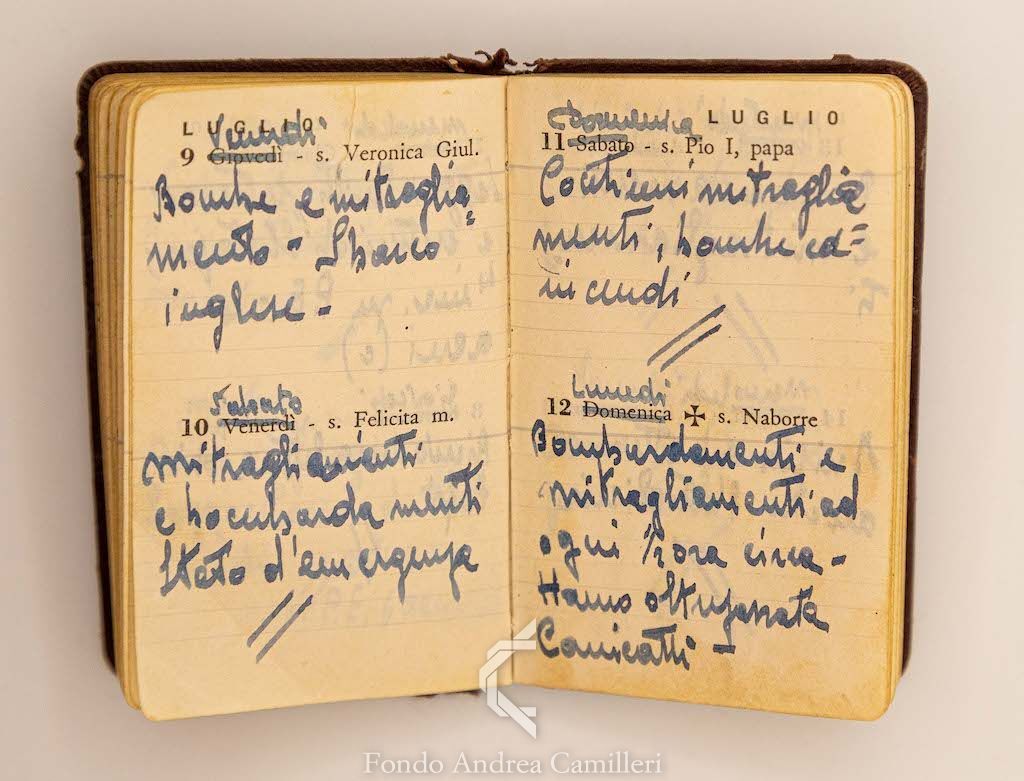 LUGLIO
Venerdi
9 Giovedì - s. Veronica Giul.
Bombe e mitraglia=
mento - Sbarco
inglese -
Sabato
10 Venerdì - s. Felicita m.
mitragliamenti
e bombardamenti
Stato d'emergenza
LUGLIO
Domenica
11 Sabato - s. Pio I, papa
Continui mitraglia
menti, bombe ed=
incendi
Lunedi
12 Domenica ✠ s. Naborre
Bombardamenti e
mitragliamenti ad
ogni ora circa -
Hanno oltrepassata
Canicattì -
Fondo Andrea Camilleri